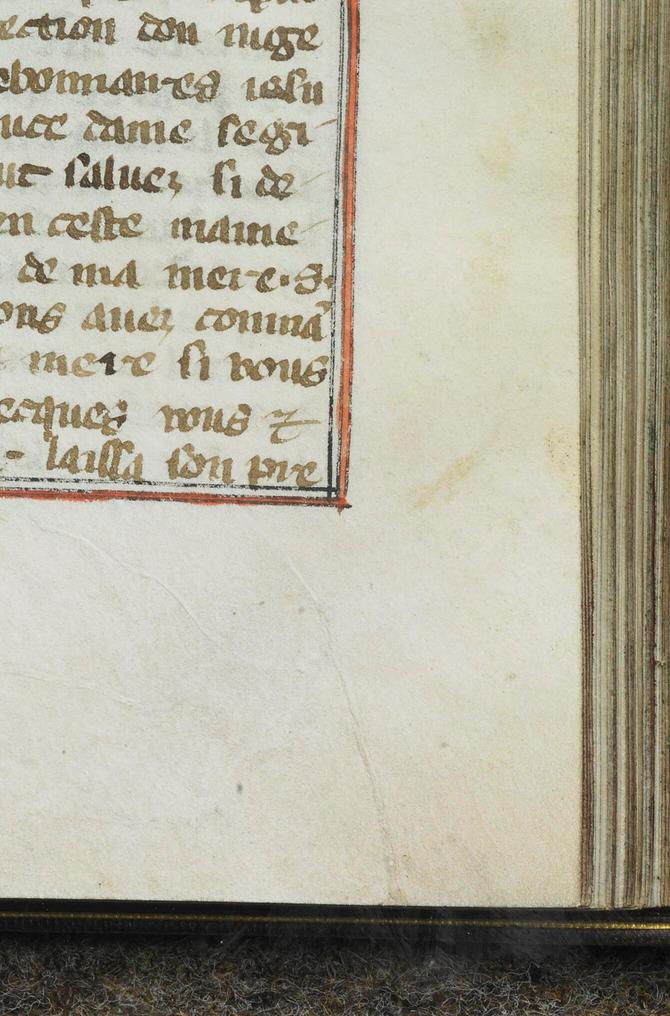 ection dou iuge
ebonnaires iesu
uce dame se gi
ut saluez si de
en ceste manie
de ma mere·S·
ons auez commã
mere si vous
ecques vous ⁊
laissa son pre